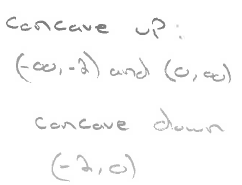 concave up:
(-∞,-2) and (0,∞)
concave down
(-2,0)